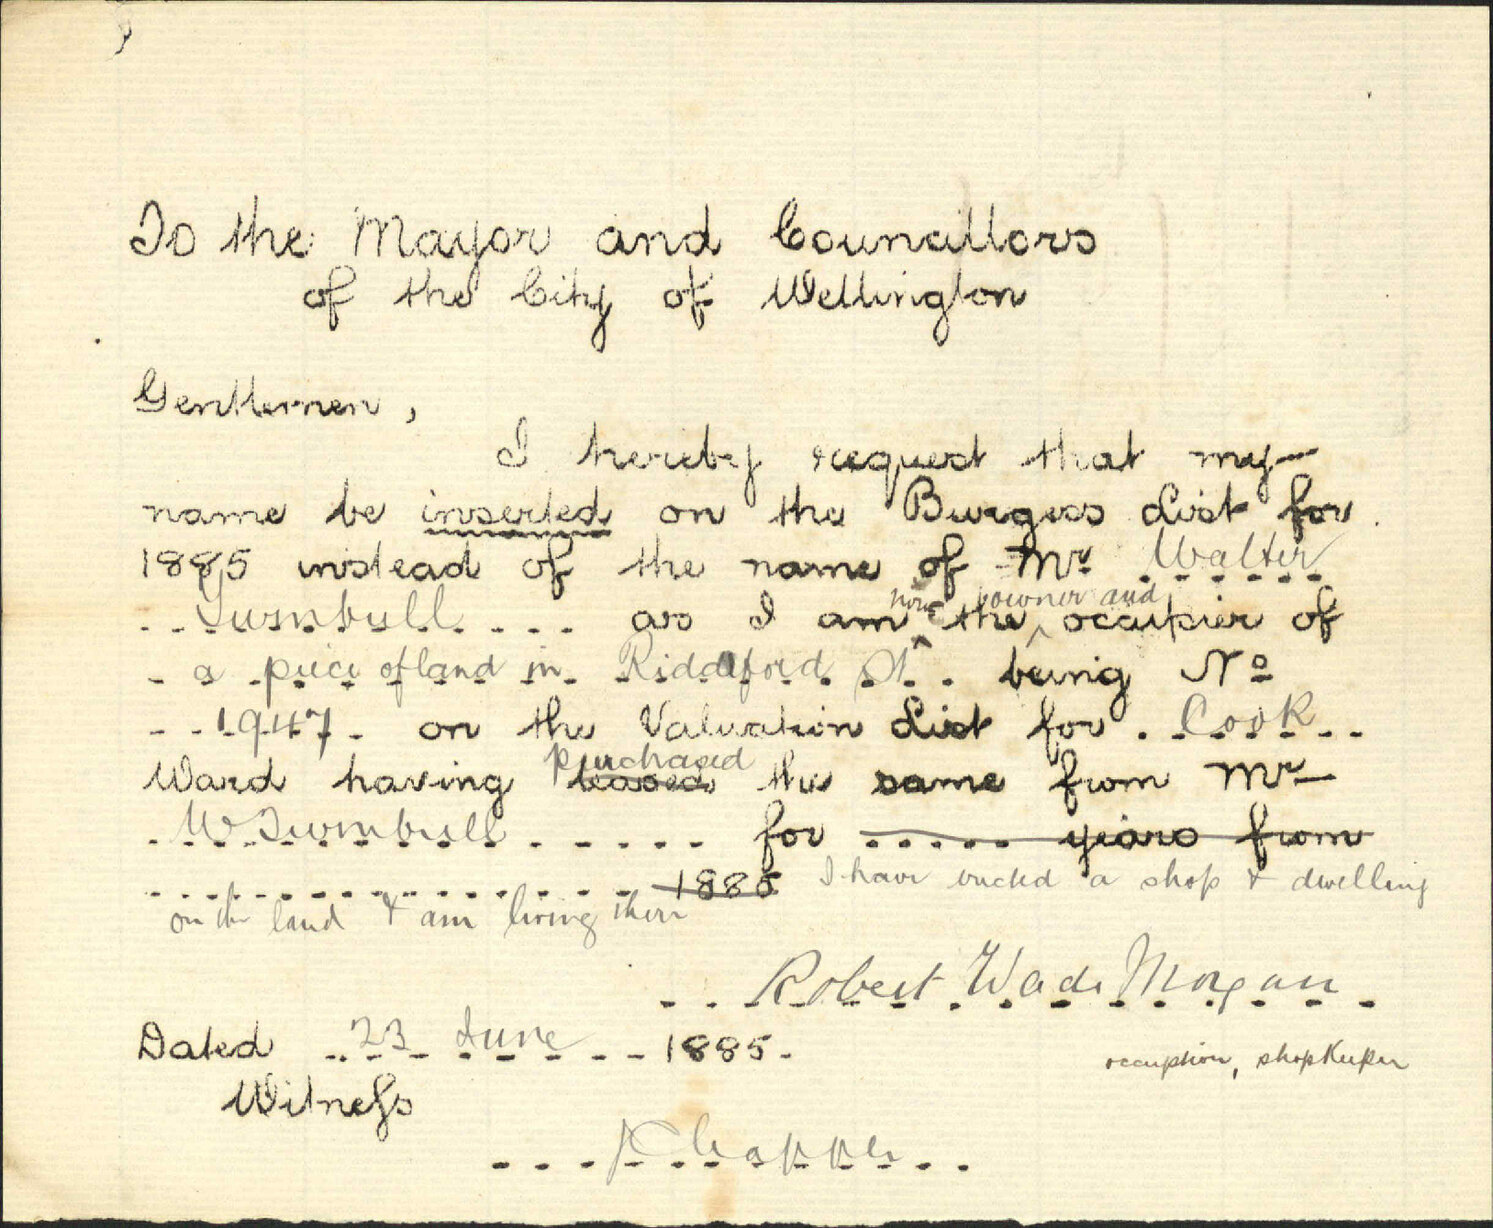 To the Mayor and Councillors
of the City of Wellington
Gentlemen,
I hereby request that my
name be inserted on the Burgess List for
1885 instead of the name of Mr Walter
now owner and
Turnbull as I am the occupier of
a piece of land in Riddiford St. being No
1947 on the Valuation List for Cook
purchased
Ward having leased the same from Mr
W Turnbull for ..... years from
1885 I have erected a shop & dwelling
on the land & am living there
Robert Wade Morgan
Dated 23 June 1885.
occuption, shopkeeper
Witness